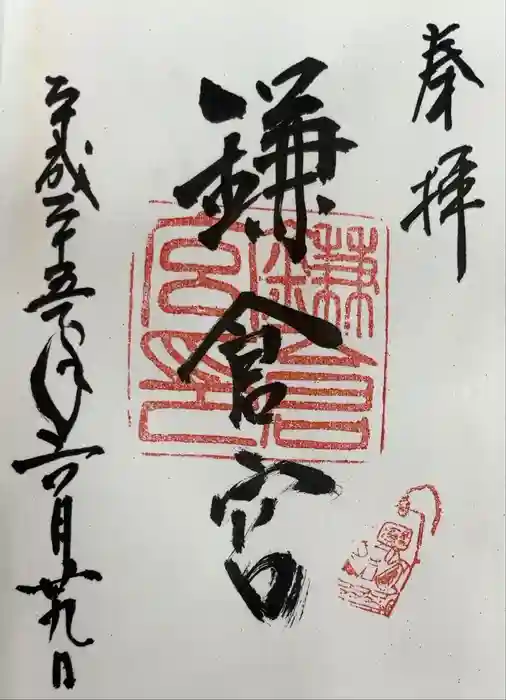 奉拝
鎌倉宮
鎌倉宮印
平成二十五年六月廿九日